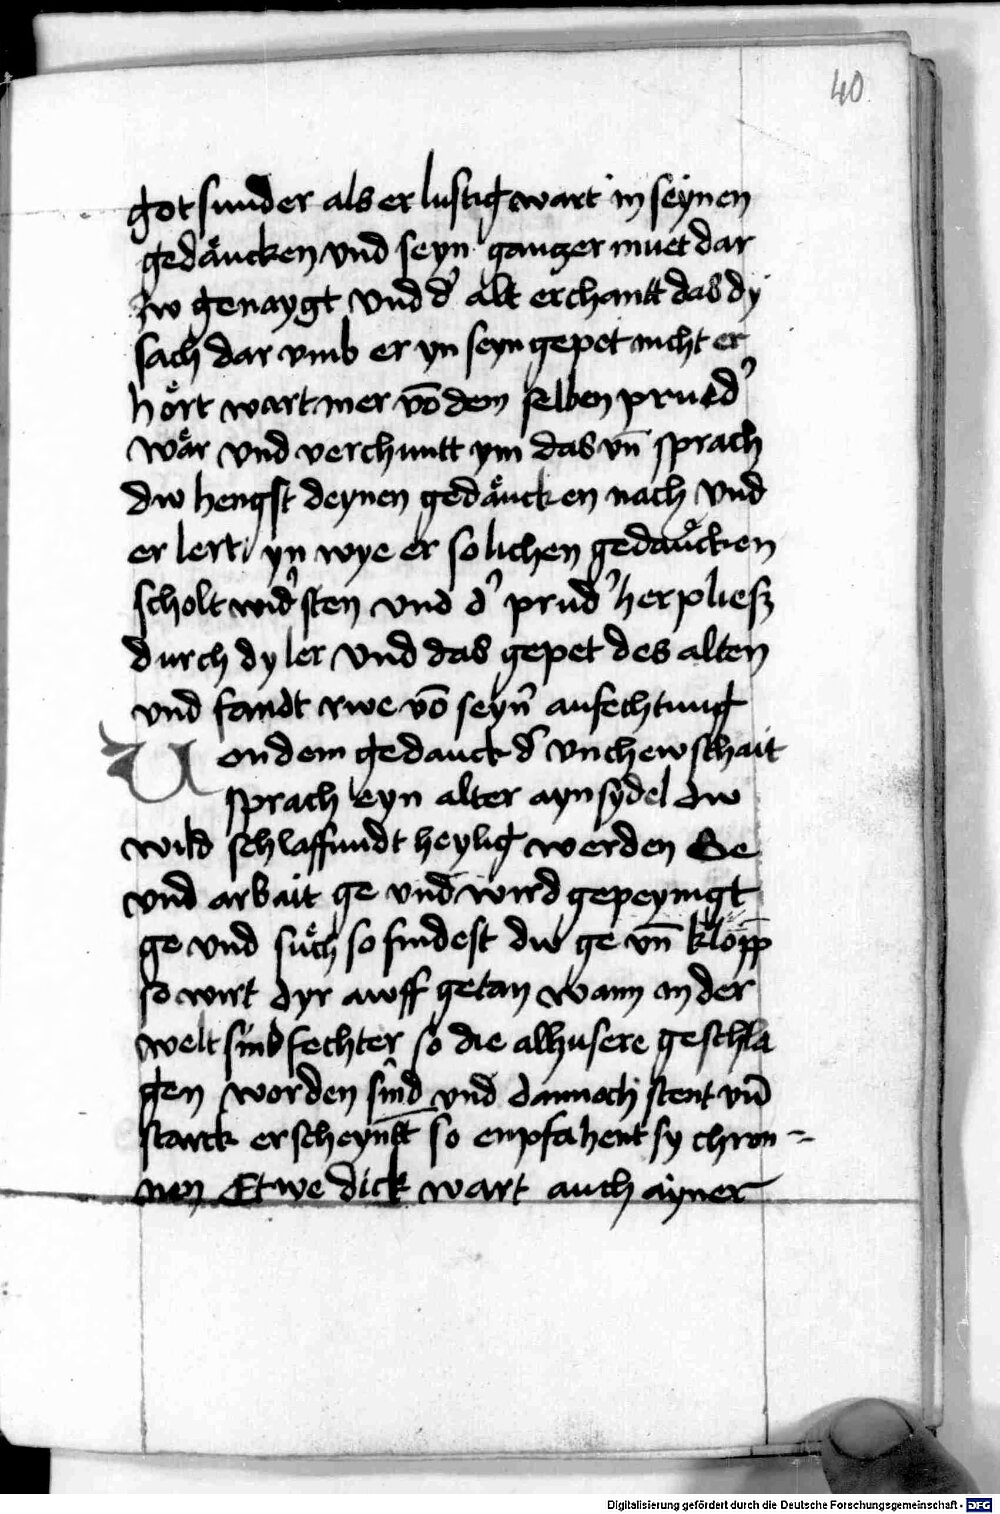 40
got sunder als er lustig wart in seynen
gedäncken vnd seyn ganczer muet dar
zw genaygt vnd d' alt erchantt das dy
sach dar vmb er yn seyn gepet nicht er
hört wart mer vō dem selben prued'
wär vnd verchuntt ym das vn̄ sprach
dw hengst deynen gedäncken nach vnd
er lert yn wye er solichen gedäncken
scholt wid'sten vnd d' prud' her pliess
durch dy ler vnd das gepet des alten
vnd fandt rwe vō seyn' anfechtung
Von dem gedanck d' vnchewschait
sprach eyn alter aynsydel dw
wild schlaffundt heylig werden Ge
vnd arbait ge vnd wird gepeynigt
ge vnd such so findest dw ge vn̄ klopp
so wirt dyr awff getan wann in der
welt sind fechter so die geschla
gen worden sind vnd dannoch stent vn̄
starck erscheynn̄tt so enpfahent sy chron-
nen Et we dick wart auch ayner
Digitalisierung gefördert durch die Deutsche Forschungsgemeinschaft - DFG